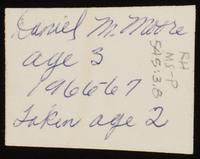 Daniel M. Moore
age 3
196667
Taken age 2
RH
MS-P
545:3.8